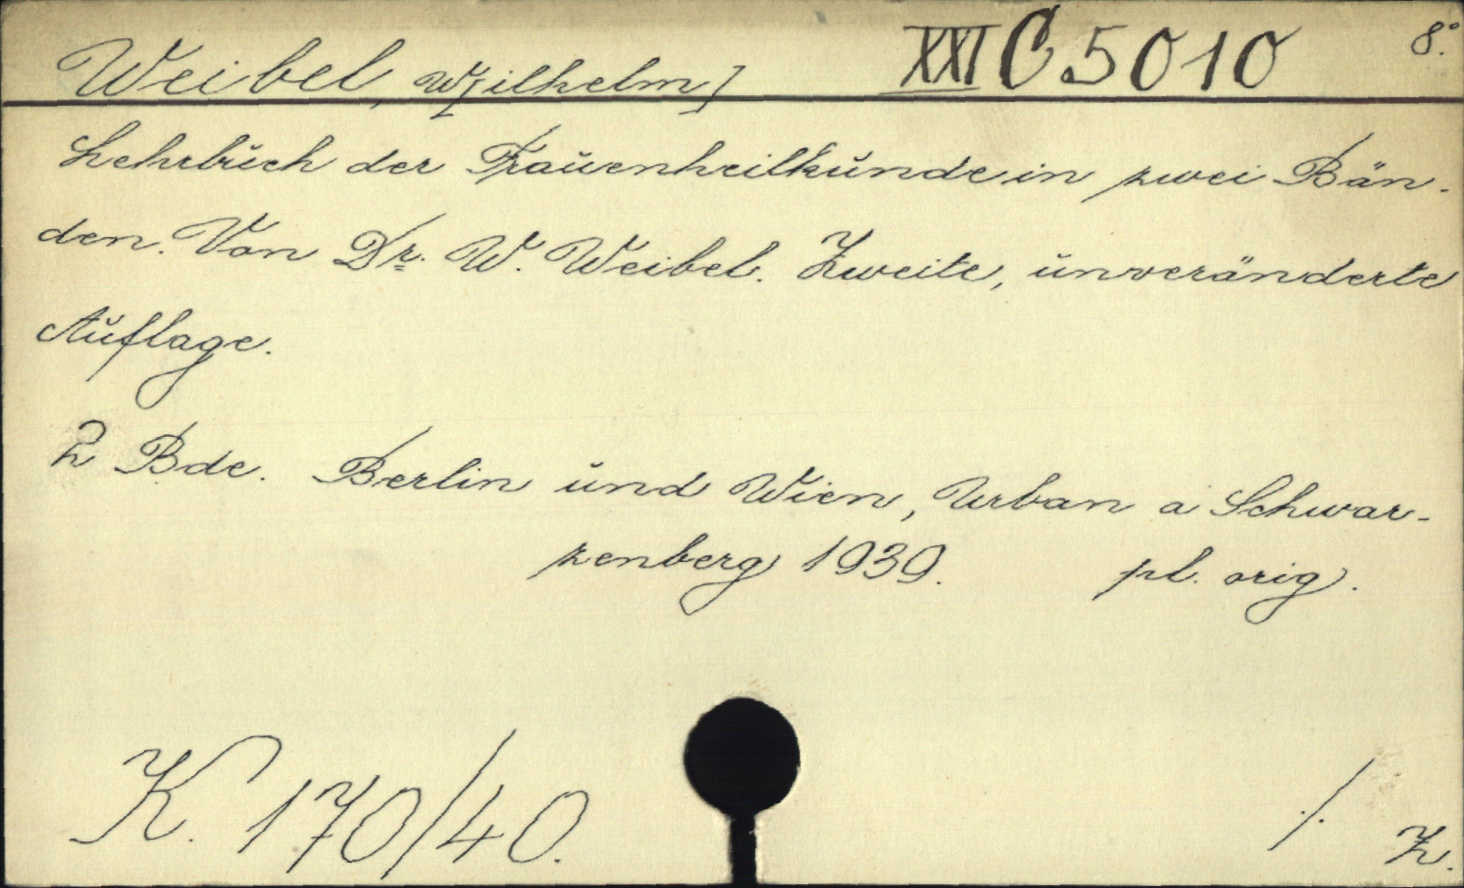 Weibel, W[ilhelm] XXI C 5010 8°.
Lehrbuch der Frauenheilkunde in zwei Bän-
den. Von Dr. W. Weibel. Zweite, unveränderte
Auflage.
2 Bde. Berlin und Wien, Urban a Schwar-
zenberg 1939. pl. orig.
K. 170/40. ./.
Z.